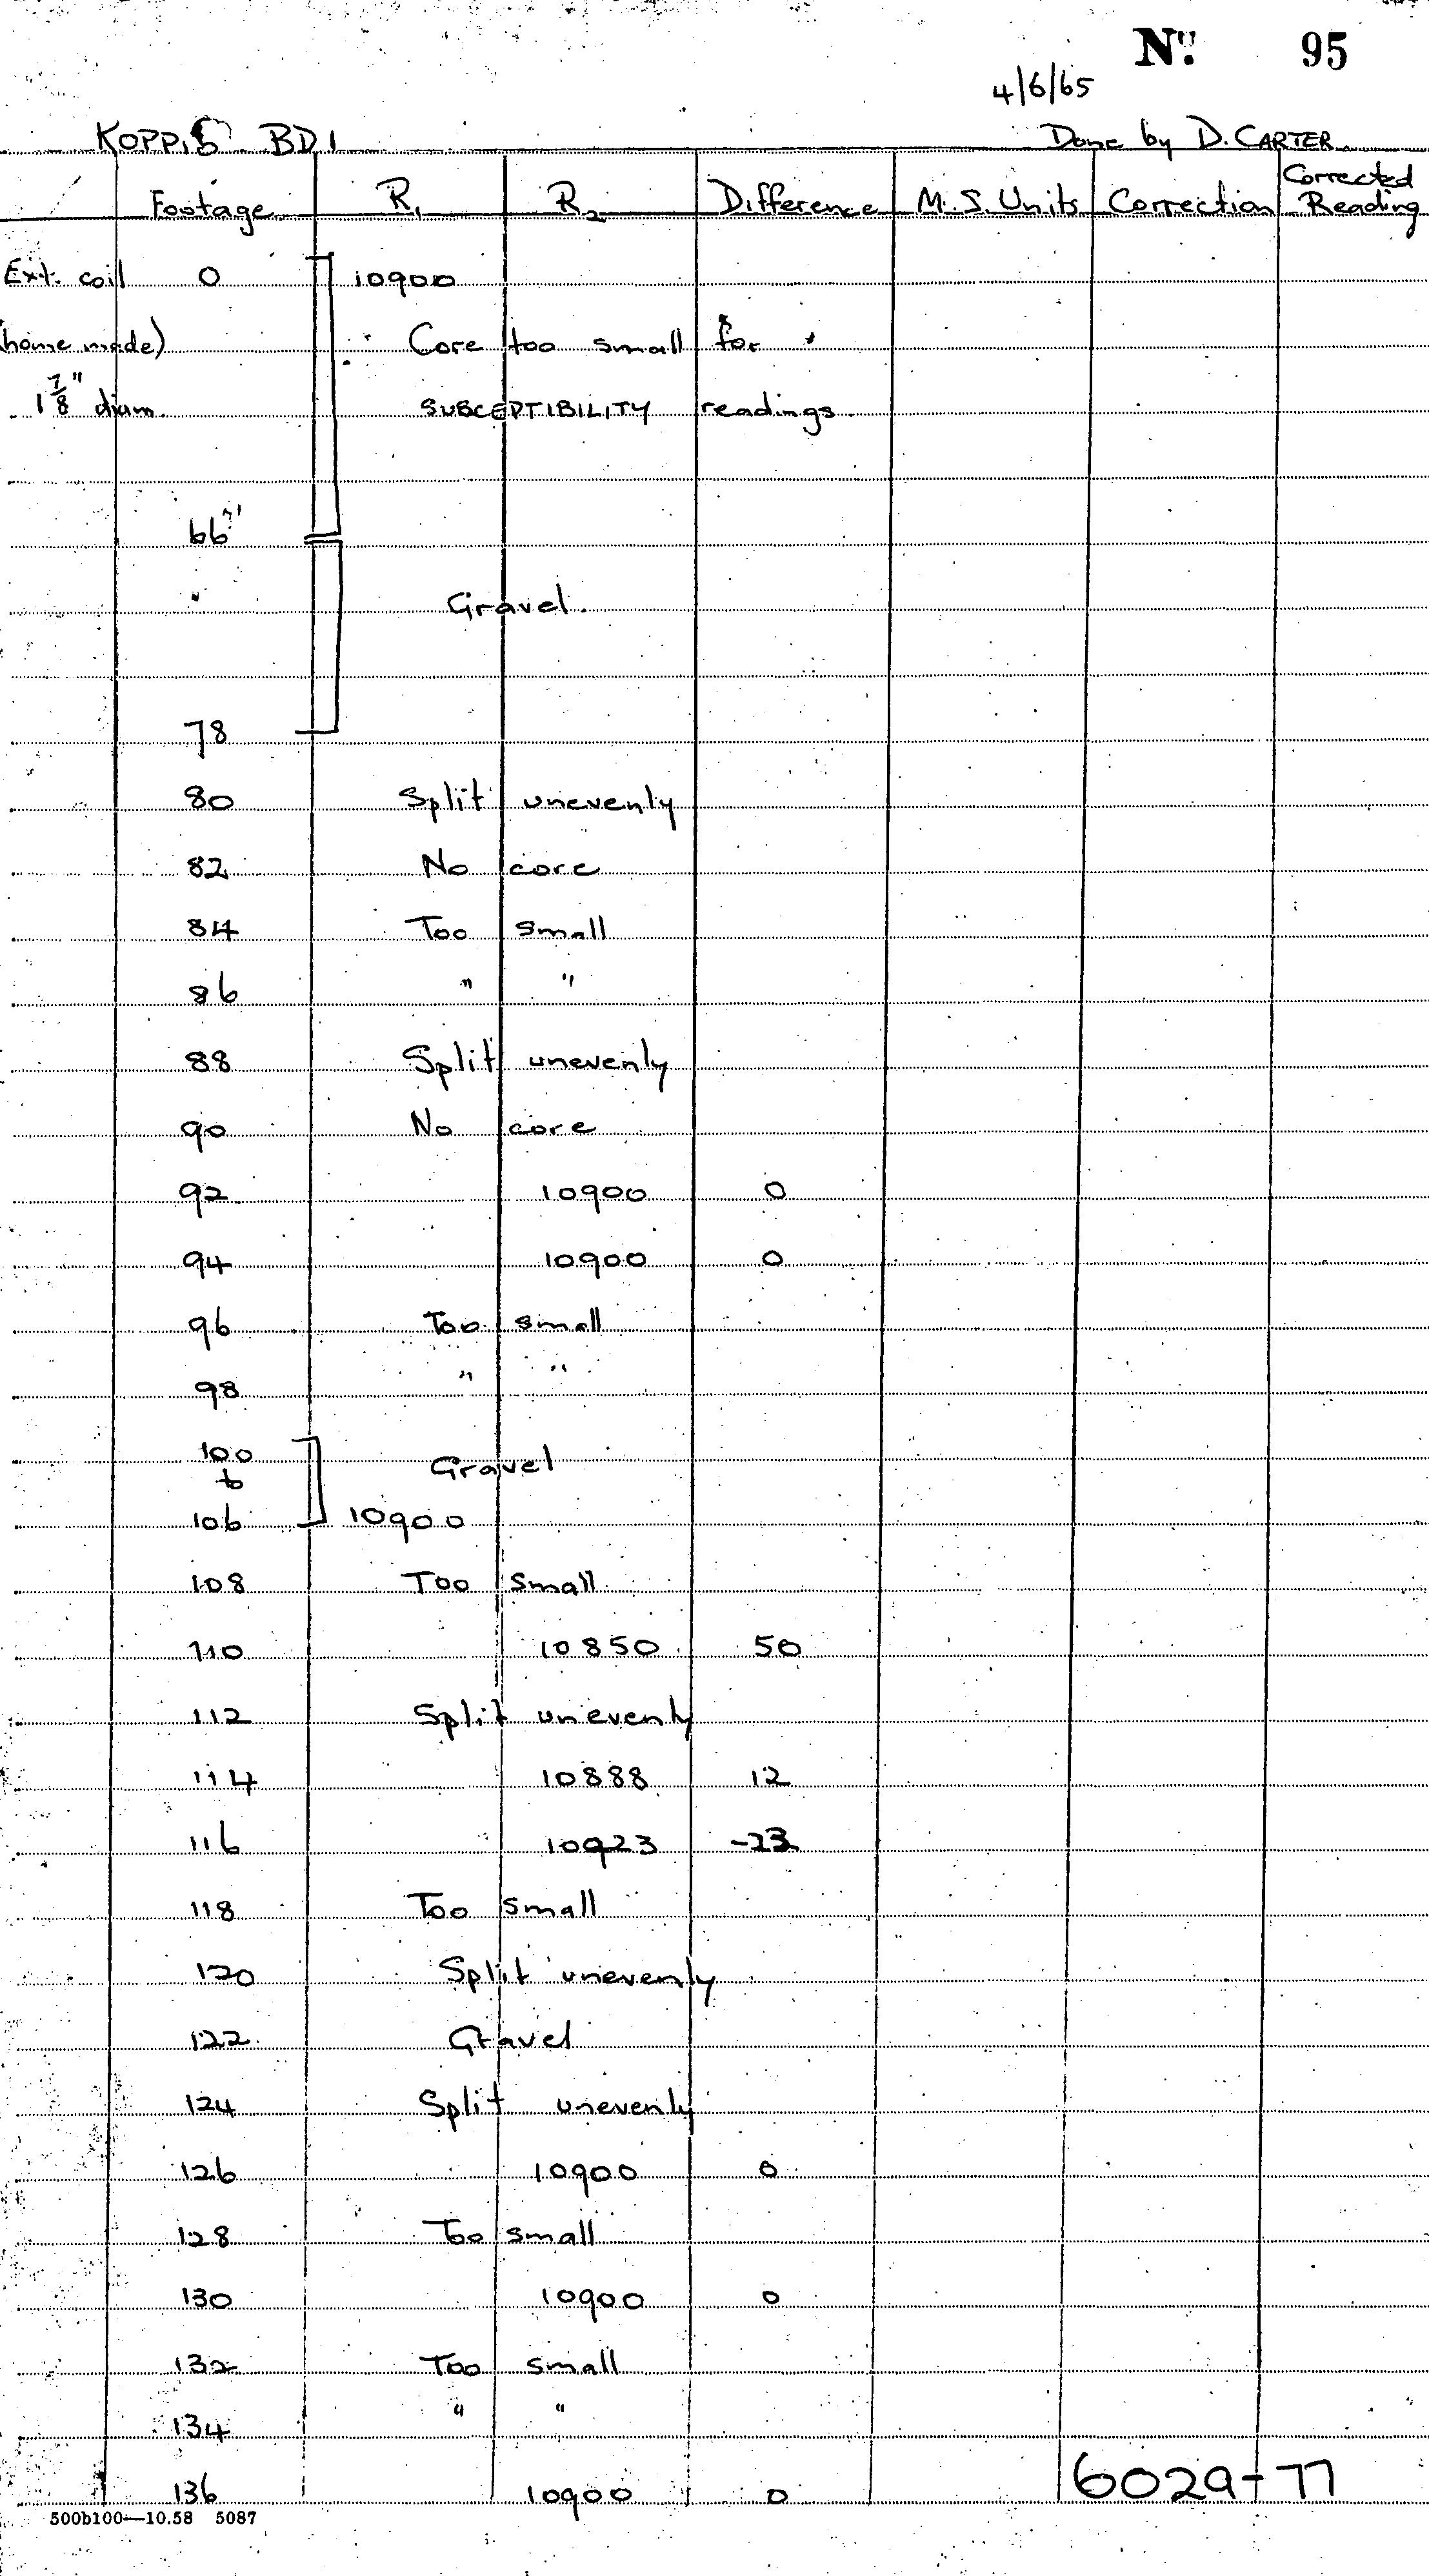 No. 95
4/6/65
KOPPIS BD1 Done by D. CARTER.
Footage R1 R2 Difference M.S. Units Correction Corrected Reading
Ext. coil 0 10900
(home made) Core too small for
1 7/8" diam. SUSCEPTIBILITY readings.
66
Gravel.
78
80 Split unevenly
82 No core
84 Too small
86 " "
88 Split unevenly
90 No core
92 10900 0
94 10900 0
96 Too small
98 " "
100 Gravel
to
106 10900
108 Too small
110 10850 50
112 Split unevenly
114 10888 12
116 10923 -23
118 Too small
120 Split unevenly
122 Gravel
124 Split unevenly
126 10900 0
128 Too small
130 10900 0
132 Too small
134 " "
136 10900 0
6029-77
500b100—10.58 5087